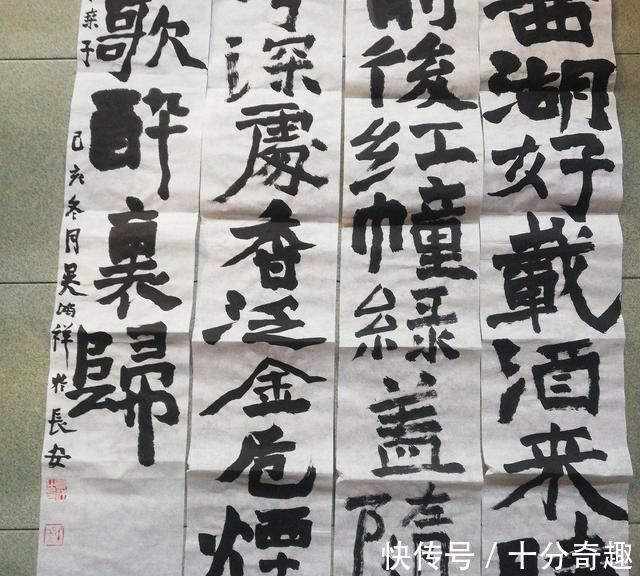 湖好載酒来時
前後紅幢緑盖隨
深處香泛金卮煙
歌醉裏歸
桑子
己亥冬月吴鸿祥於長安
快传号 / 十分奇趣